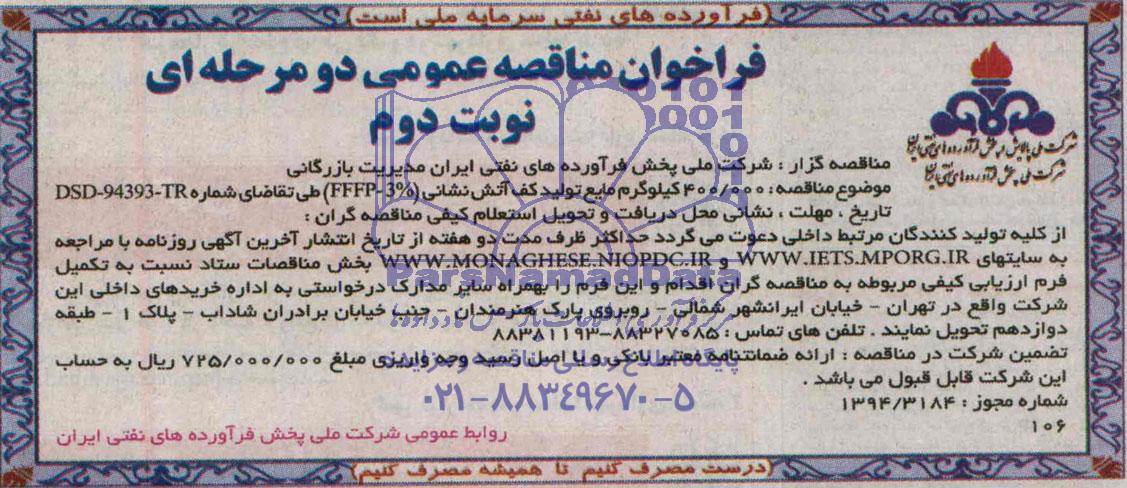 (فرآورده های نفتی سرمایه ملی است)
فراخوان مناقصه عمومی دو مرحله ای
نوبت دوم
شرکت ملی پالایش و پخش فرآورده های نفتی ایران
شرکت ملی پخش فرآورده های نفتی ایران
مناقصه گزار : شرکت ملی پخش فرآورده های نفتی ایران مدیریت بازرگانی
موضوع مناقصه : ۴۰۰/۰۰۰ کیلوگرم مایع تولید کف آتش نشانی (FFFP-3%) طی تقاضای شماره DSD-94393-TR
تاریخ ، مهلت ، نشانی محل دریافت و تحویل استعلام کیفی مناقصه گران :
از کلیه تولید کنندگان مرتبط داخلی دعوت می گردد حداکثر ظرف مدت دو هفته از تاریخ انتشار آخرین آگهی روزنامه با مراجعه
به سایتهای WWW.IETS.MPORG.IR و WWW.MONAGHESE.NIOPDC.IR بخش مناقصات ستاد نسبت به تکمیل
فرم ارزیابی کیفی مربوطه به مناقصه گران اقدام و این فرم را بهمراه سایر مدارک درخواستی به اداره خریدهای داخلی این
شرکت واقع در تهران - خیابان ایرانشهر شمالی - روبروی پارک هنرمندان - جنب خیابان برادران شاداب - پلاک ۱ - طبقه
دوازدهم تحویل نمایند . تلفن های تماس : ۸۸۳۲۷۰۸۵-۸۸۳۸۱۱۹۳
تضمین شرکت در مناقصه : ارائه ضمانتنامه معتبر بانکی و یا اصل رسید وجه واریزی مبلغ ۷۲۵/۰۰۰/۰۰۰ ریال به حساب
این شرکت قابل قبول می باشد .
شماره مجوز : ۱۳۹۴/۳۱۸۴
۱۰۶
روابط عمومی شرکت ملی پخش فرآورده های نفتی ایران
(درست مصرف کنیم تا همیشه مصرف کنیم)
ParsNamadData
۰۲۱-۸۸۳۴۹۶۷۰-۵